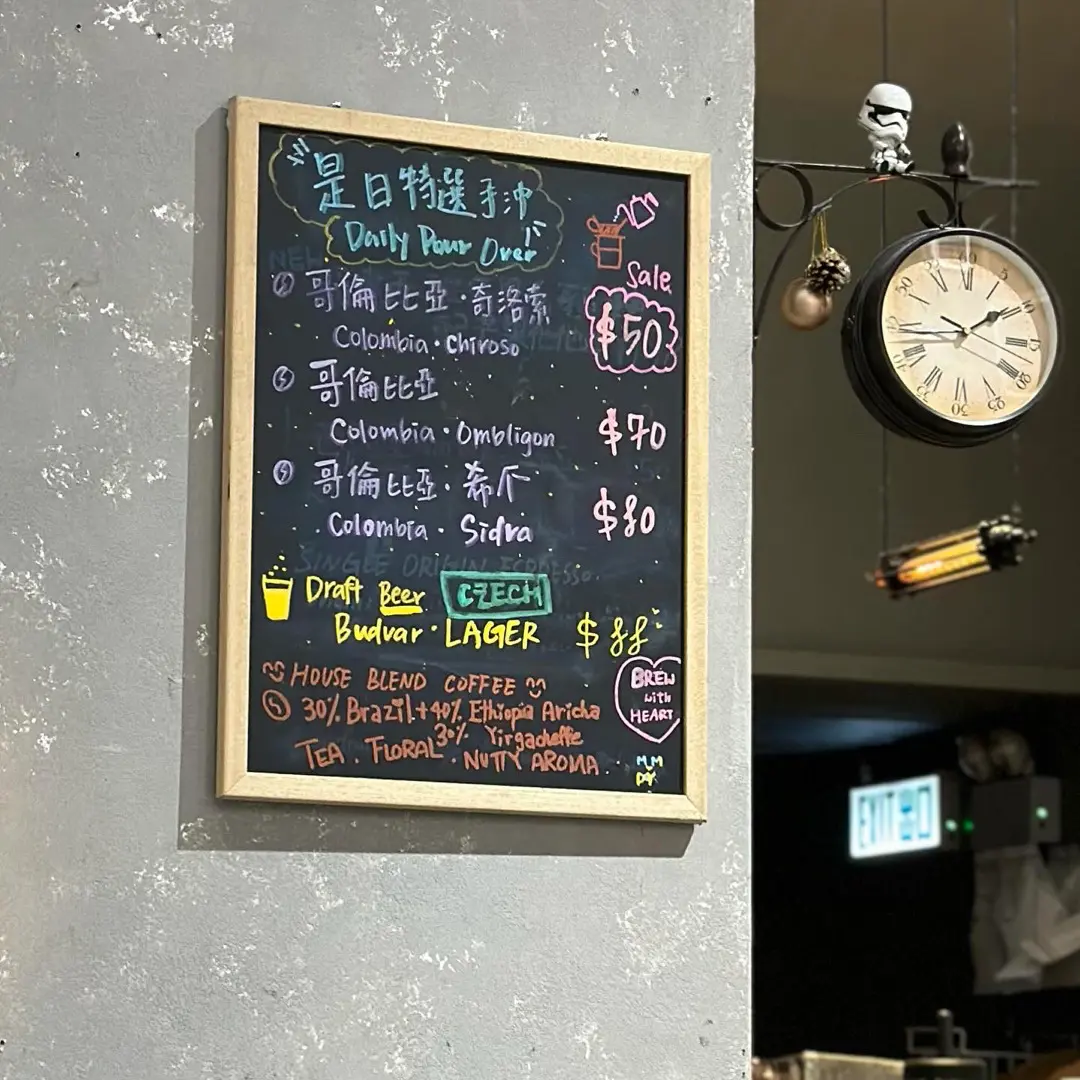 是日特選手沖
Daily Pour Over
哥倫比亞·奇洛索
Sale
$50
Colombia · Chiroso
哥倫比亞
Colombia · Ombligon
$70
哥倫比亞·希爪
Colombia · Sidra
$80
SINGLE ORIGIN ESPRESSO
Draft Beer CZECH
Budvar · LAGER $88
HOUSE BLEND COFFEE
30% Brazil + 40% Ethiopia Aricha
30% Yirgacheffe
TEA . FLORAL . NUTTY AROMA .
BREW
with
HEART
EXIT